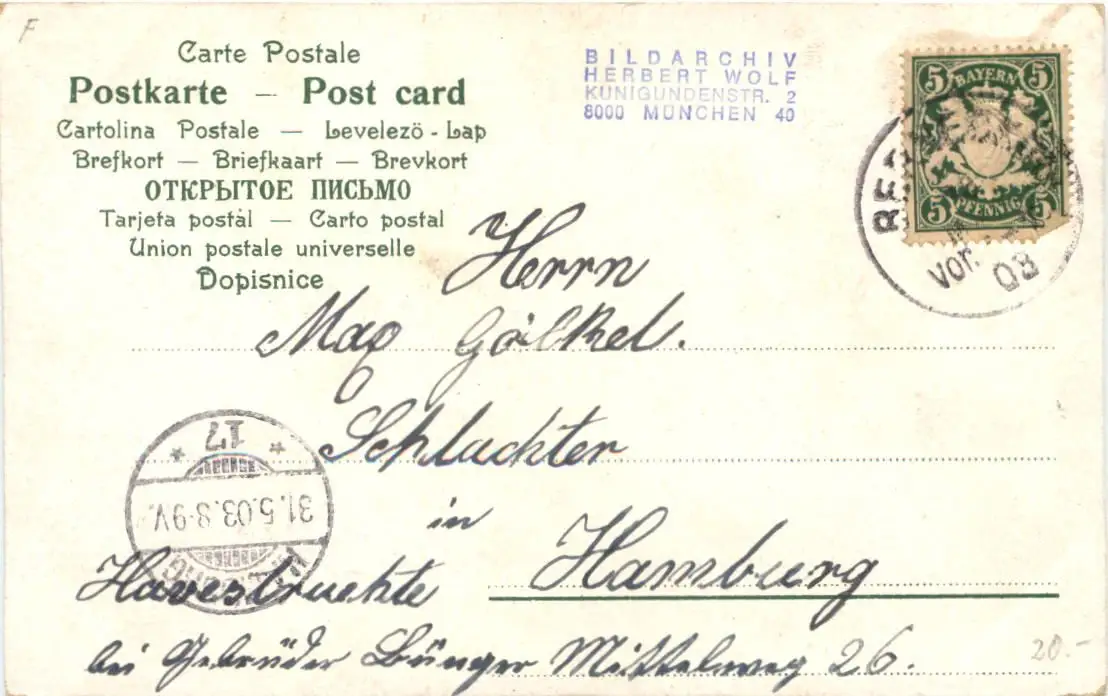 F
Carte Postale
Postkarte — Post card
Cartolina Postale — Levelezö - Lap
Brefkort — Briefkaart — Brevkort
ОТКРЫТОЕ ПИСЬМО
Tarjeta postál — Carto postal
Union postale universelle
Dopisnice
BILDARCHIV
HERBERT WOLF
KUNIGUNDENSTR. 2
8000 MÜNCHEN 40
5 BAYERN 5
5 PFENNIG 5
Vor.
03
Herrn
Max Gölkel.
Schlachter
in
Hamburg
17
31.5.03.8-9V.
HAMBURG
bei Gebrüder Bünger Mittelweg 26.
20.-